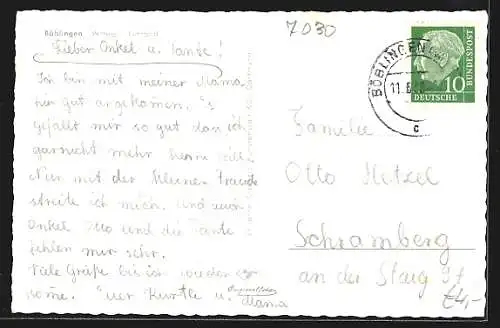 Böblingen
7030
Lieber Onkel u. Tante!
Ich bin mit meiner Mama
nur gut angekommen. Es
gefällt mir so gut das ich
garnicht mehr heim will.
Nur mit der kleinen Traude
streite ich mich. Und zwar
Onkel Otto und die Tante
fehlen mir sehr.
Viele Grüße bis ich wieder
komme. Euer Kurtle u. Mama
BÖBLINGEN
11.
c
10
DEUTSCHE
BUNDESPOST
Familie
Otto Hetzel
Schramberg
an der Staig 97
€4,-